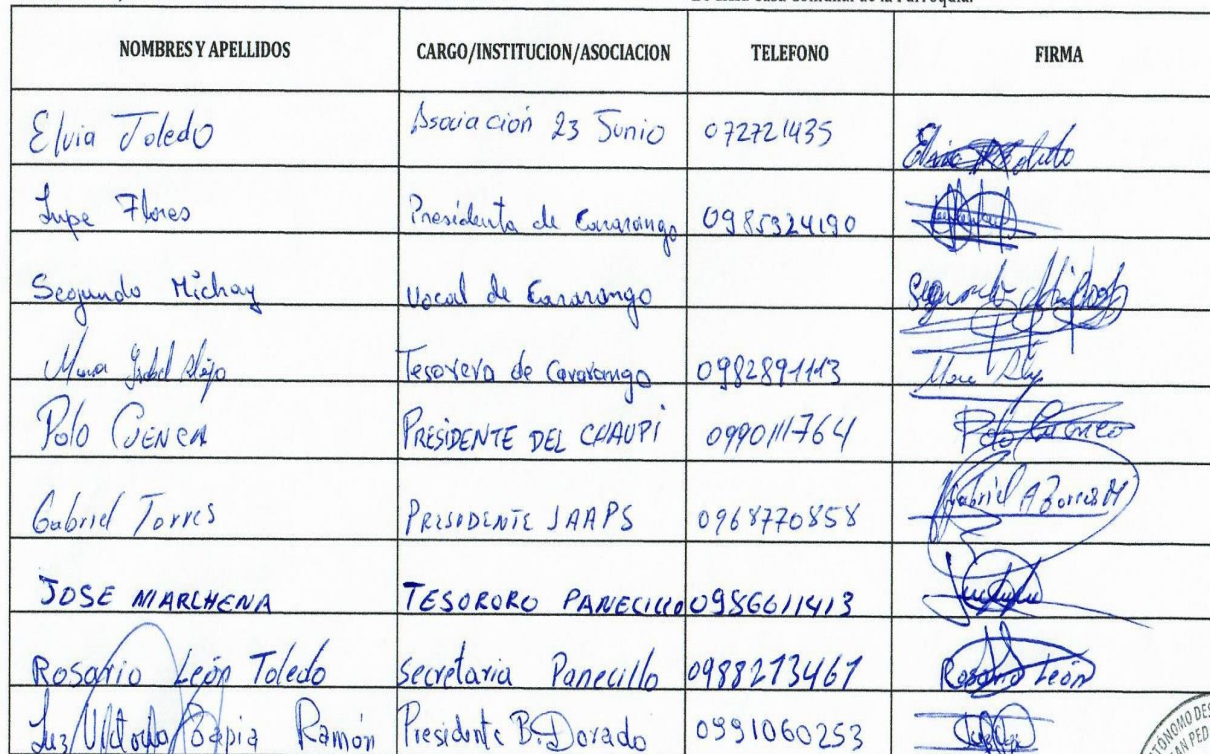 Casa Comunal de la Parroquia.
NOMBRES Y APELLIDOS CARGO/INSTITUCION/ASOCIACION TELEFONO FIRMA
Elvia Toledo Asociación 23 Junio 072721435
Lupe Flores Presidenta de Cararango 0985324190
Segundo Michay Vocal de Cararango Segundo
Tesorera de Cararango
Polo CUENCA PRESIDENTE DEL CHAUPI 0990111764 Polo
Gabriel Torres PRESIDENTE JAAPS 0968770858 Gabriel A Torres M
JOSE MARCHENA TESORORO PANECILLO 0986611413
Rosario León Toledo Secretaria Panecillo 0988213461 Rosario León
Luz Victoria Tapia Ramón Presidente B. Dorado 0991060253